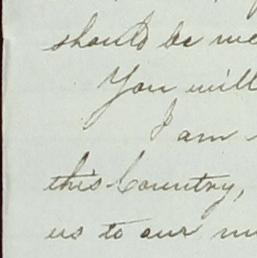 should be
You will
I am
this Country,
us to our